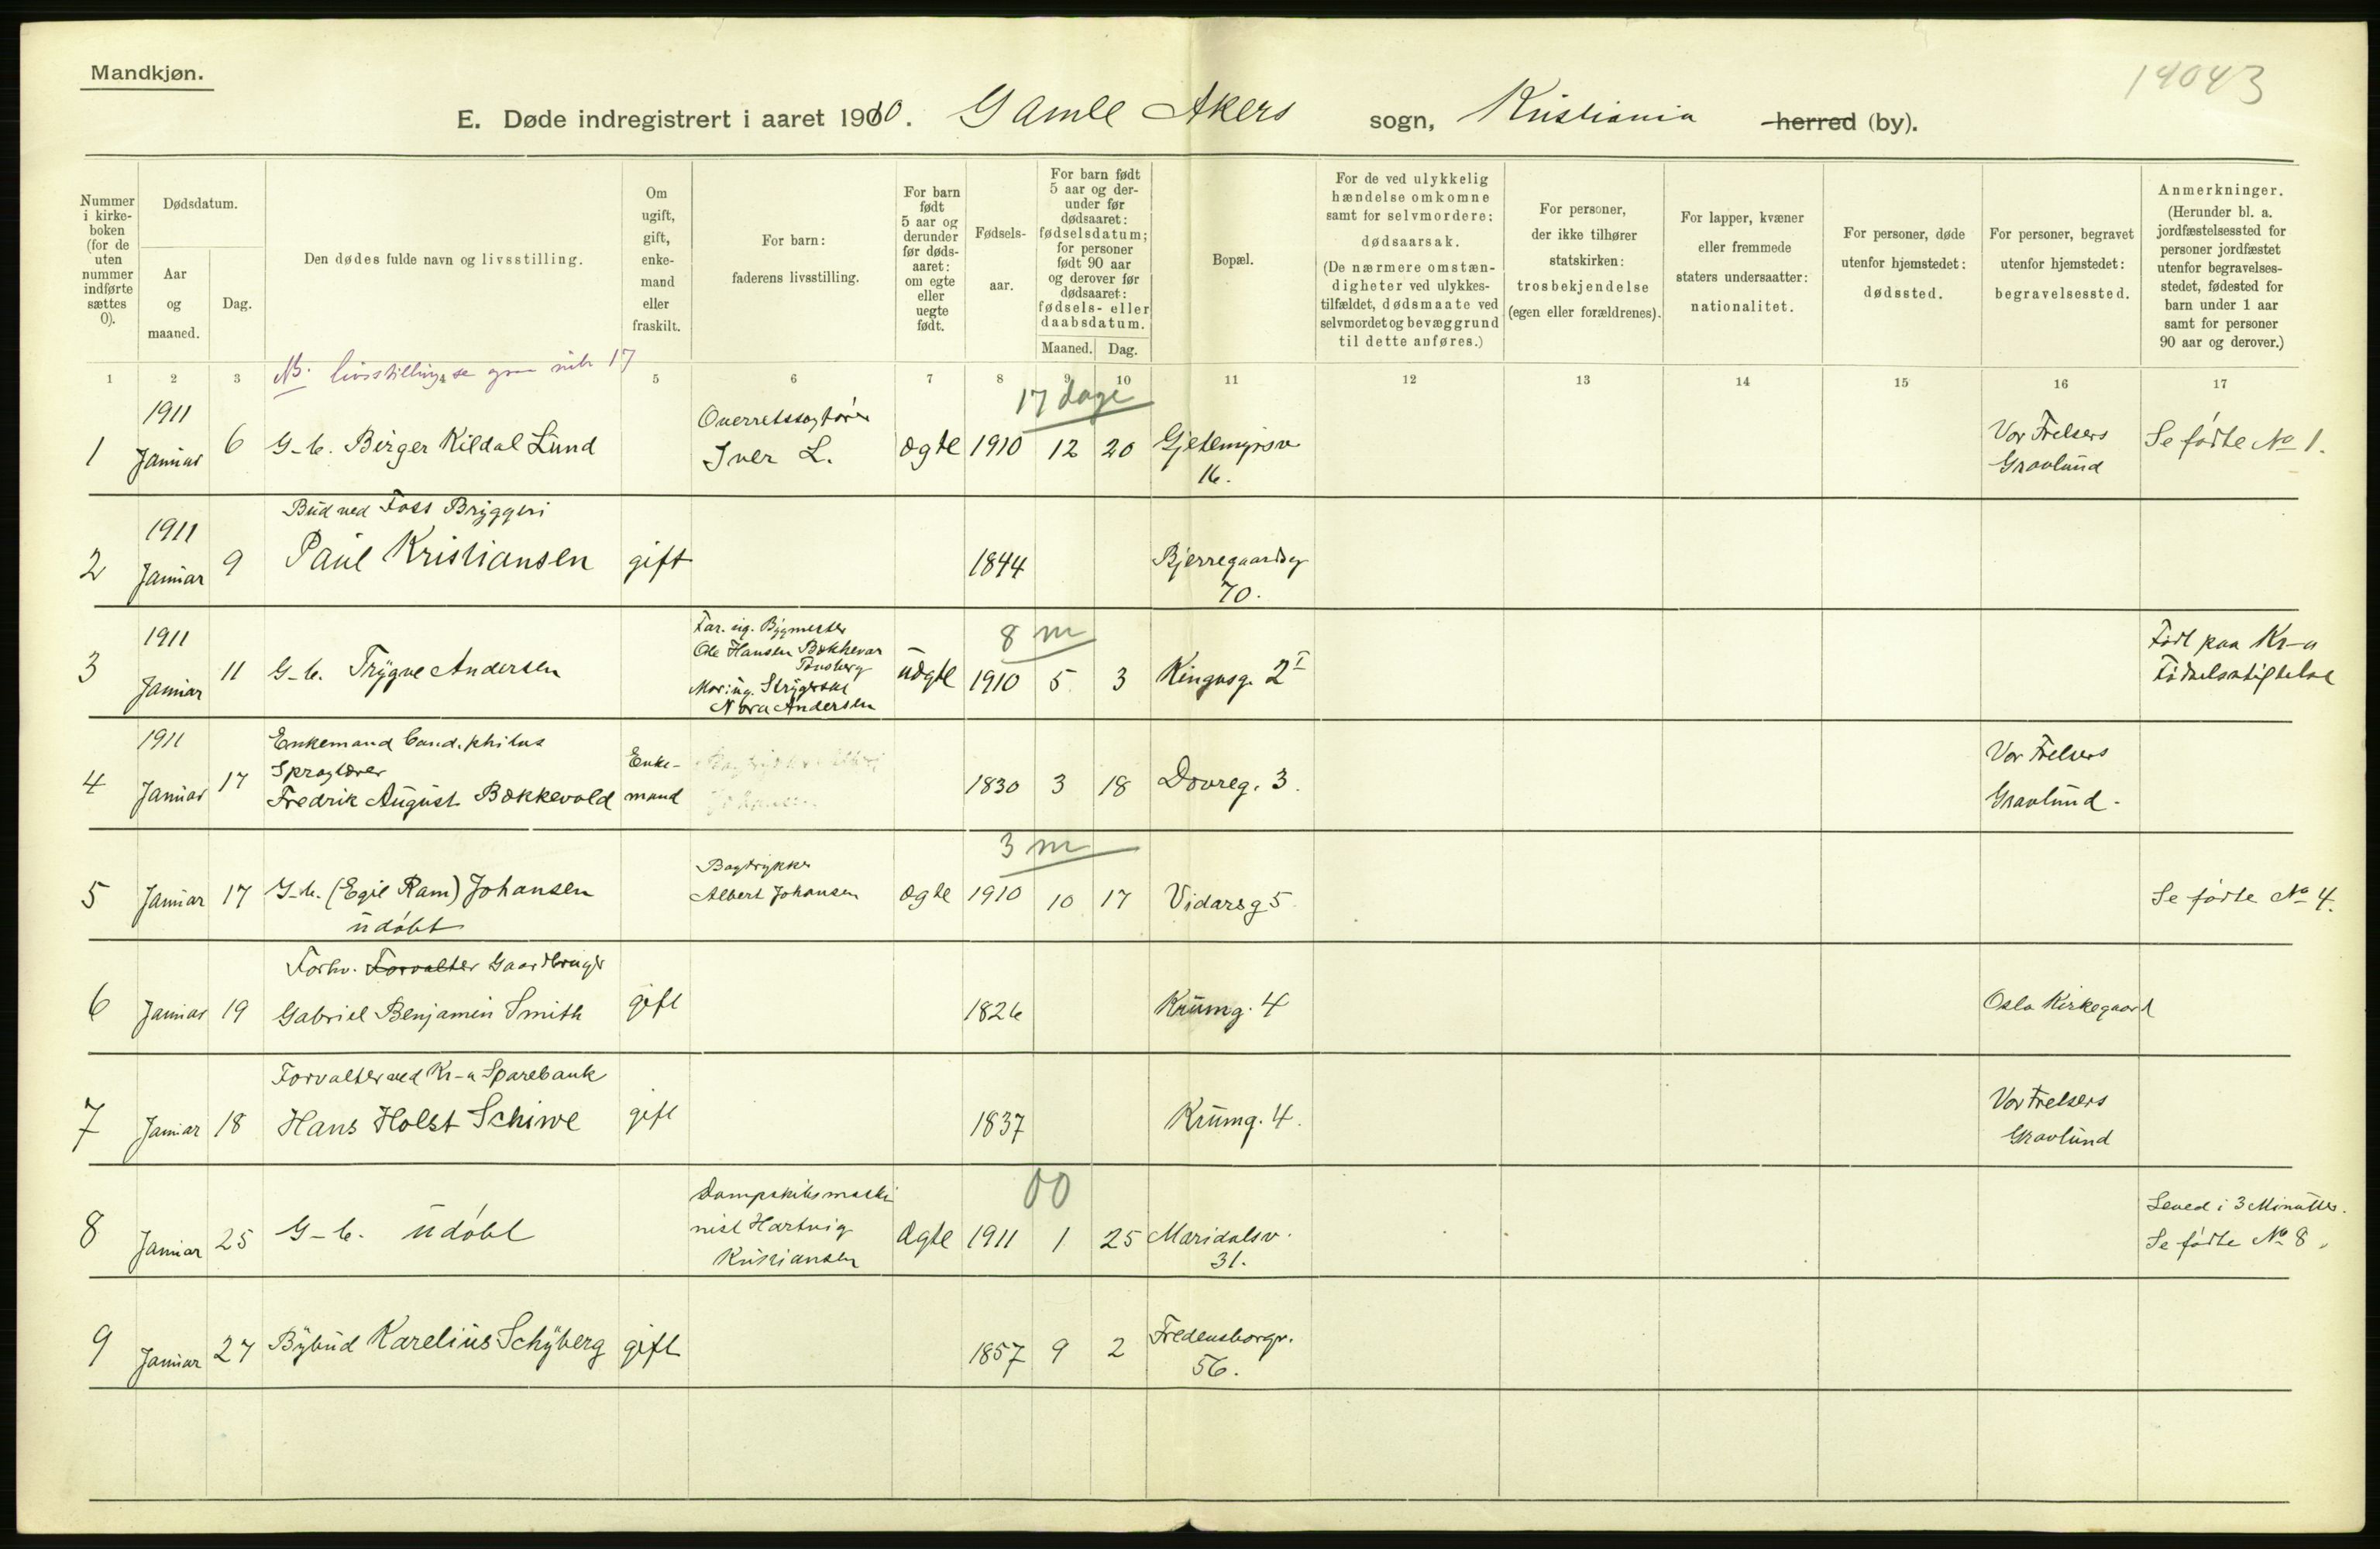 Mandkjøn.
14043
E. Døde indregistrert i aaret 1910. Gamle Akers sogn, Kristiania herred (by).
Nummer i kirke- boken (for de uten nummer indførte sættes 0).
Dødsdatum.
Aar og maaned.
Dag.
Den dødes fulde navn og livsstilling.
Om ugift, gift, enke- mand eller fraskilt.
For barn: faderens livsstilling.
For barn født 5 aar og derunder før døds- aaret: om egte eller uegte født.
Fødsels- aar.
For barn født 5 aar og der- under før dødsaaret: fødselsdatum; for personer født 90 aar og derover før dødsaaret: fødsels- eller daabsdatum.
Maaned. Dag.
Bopæl.
For de ved ulykkelig hændelse omkomne samt for selvmordere: dødsaarsak. (De nærmere omstæn- digheter ved ulykkes- tilfældet, dødsmaate ved selvmordet og bevæggrund til dette anføres.)
For personer, der ikke tilhører statskirken: trosbekjendelse (egen eller forældrenes).
For lapper, kvæner eller fremmede staters undersaatter: nationalitet.
For personer, døde utenfor hjemstedet: dødssted.
For personer, begravet utenfor hjemstedet: begravelsessted.
Anmerkninger. (Herunder bl. a. jordfæstelsessted for personer jordfæstet utenfor begravelses- stedet, fødested for barn under 1 aar samt for personer 90 aar og derover.)
NB. livsstilling 17
1 2 3 5 6 7 8 9 10 11 12 13 14 15 16 17
17 dage
1 1911 Januar 6 G-b. Birger Kildal Lund Overretssagfører Iver L. ægte 1910 12 20 Gjetemyrsv 16. Vor Frelsers Gravlund Se fødte No 1.
Bud ved Foss Bryggeri
2 1911 Januar 9 Paul Kristiansen gift 1844 Bjerregaardsg 70.
8 m
3 1911 Januar 11 G-b. Trygve Andersen Far. ug. Bygmester Ole Hansen Tønsberg Mor: ug. Strygerske Nora Andersen uægte 1910 5 3 Kingosg. 2 I Født paa Kr-a Fødselsstiftelse
Enkemand Cand. philos
Spraglærer
4 1911 Januar 17 Fredrik August Bækkevold Enke- mand 1830 3 18 Dovreg. 3. Vor Frelsers Gravlund.
3 m
5 Januar 17 G-b. (Egil Ram) Johansen udøbt Bogtrykker Albert Johansen ægte 1910 10 17 Vidarsg 5 Se fødte No 4.
Forhv. Forvalter Gaardbruger
6 Januar 19 Gabriel Benjamin Smith gift 1826 Krumg. 4 Oslo Kirkegaard
Forvalter ved Kr-a Sparebank
7 Januar 18 Hans Holst Schiwe gift 1837 Krumg. 4. Vor Frelsers Gravlund
00
8 Januar 25 G-b. udøbt Dampskibsmaski nist Hartvig Kristiansen ægte 1911 1 25 Maridalsv. 31. Leved i 3 Minutter. Se fødte No 8.
9 Januar 27 Bybud Karelius Schyberg gift 1857 9 2 Fredensborgv. 56.